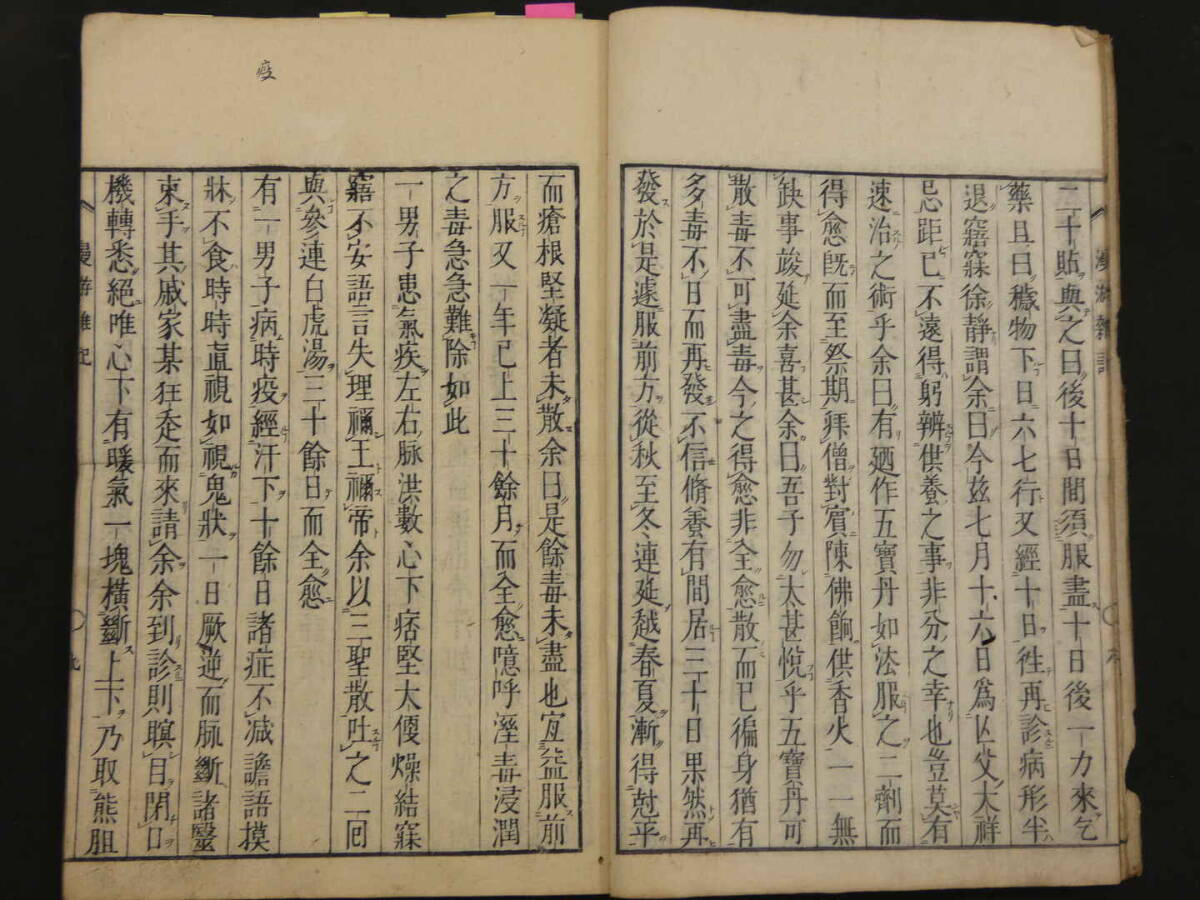 漫游雜記
二十貼與之曰後十日間須服盡十日後一力來乞
藥且曰穢物下日六七行又經十日徃再診病形半
退寤寐徐靜謂余曰今玆七月十六日爲亾父大祥
忌距已不遠得躬辨供養之事非分之幸也豈莫有
速治之術乎余曰有廼作五寶丹如法服之二劑而
得愈旣而至祭期拜僧對賓陳佛餉供香火一一無
缺事竣延余喜甚余曰吾子勿太甚悅乎五寶丹可
散毒不可盡毒今之得愈非全愈散而已徧身猶有
多毒不日而再發不信脩養有間居三十日果然再
發於是遽服前方從秋至冬連延越春夏漸得尅平
而瘡根堅凝者未散余曰是餘毒未盡也宜益服前
方服又一年已上三十餘月而全愈噫呼溼毒浸潤
之毒急急難除如此
一男子患氣疾左右脉洪數心下痞堅大便燥結寐
寤不安語言失理禰王禰帝余以三聖散吐之二囘
與參連白虎湯三十餘日而全愈
有一男子病時疫經汗下十餘日諸症不減譫語摸
牀不食時時直視如視鬼狀一日厥逆而脉斷諸毉
束手其戚家某狂走而來請余余到診則瞑目閉口
機轉悉絕唯心下有暖氣一塊橫斷上下乃取熊胆
漫游雜記
九
疫